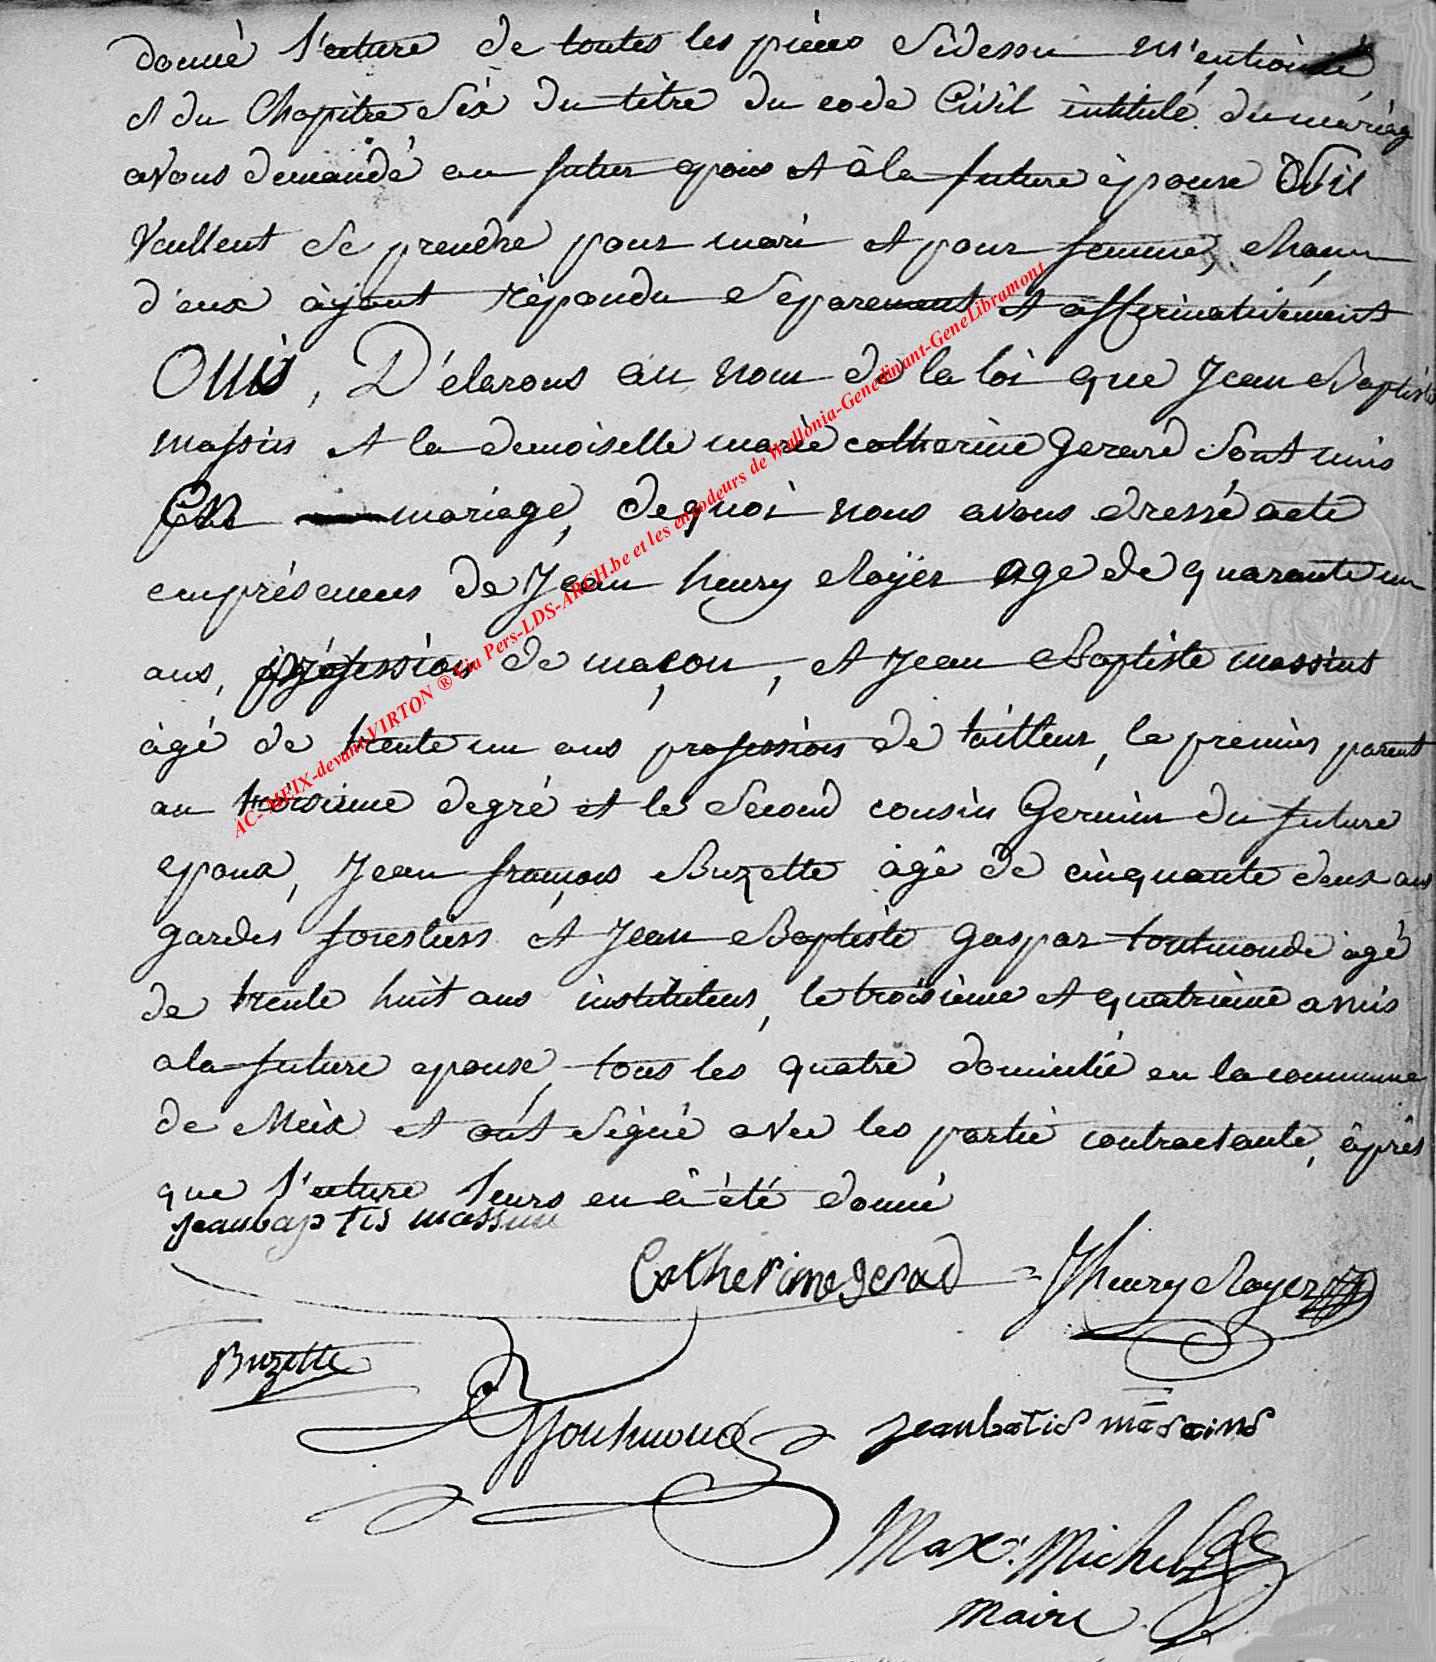 donné l'ecture de toutes les pièces Sidessu m'entionné
et du Chapitre Six du titre du code Civil intitulé du mariag
avons demandé au futur epoux et à la future épouse S'il
Veullent Se prendre pour mari et pour femme, chacun
d'eux àyant répondu Séparement et affirmativement
Ouis, D'élarons au nom de la loi que Jean Baptiste
massin et la demoiselle marie catherine Gerard Sont unis
En mariage, de quoi nous avons dressé acte
en présences de Jean henry Royer age de quarante un
ans, proféssion de maçon, et Jean Baptiste massint
àgé de trente un ans profession de tailleur, le premier parent
au troisieme degré et le Second cousin Germin du future
epoux, Jean françois Buzette àgé de cinquante deux ans
gardes forestiers et Jean Baptiste Gaspar toutmonde àgé
de trente huit ans instituteur, le troisième et quatrième amis
a la future epouse, tous les quatre domicilié en la commune
de Meix et ont Signé avec les partie contractante, àprès
que l'ecture leurs en à été donné
jeanbaptis massin
Catherine gerard JhenryRoyer
Buzette
Toutmonde jeanbatis massins
Max. Michel
Maire
AC-MEIX-devant-VIRTON ® Via Pers-LDS-ARCH.be et les encodeurs de Wallonia-Genedinant-GeneLibramont